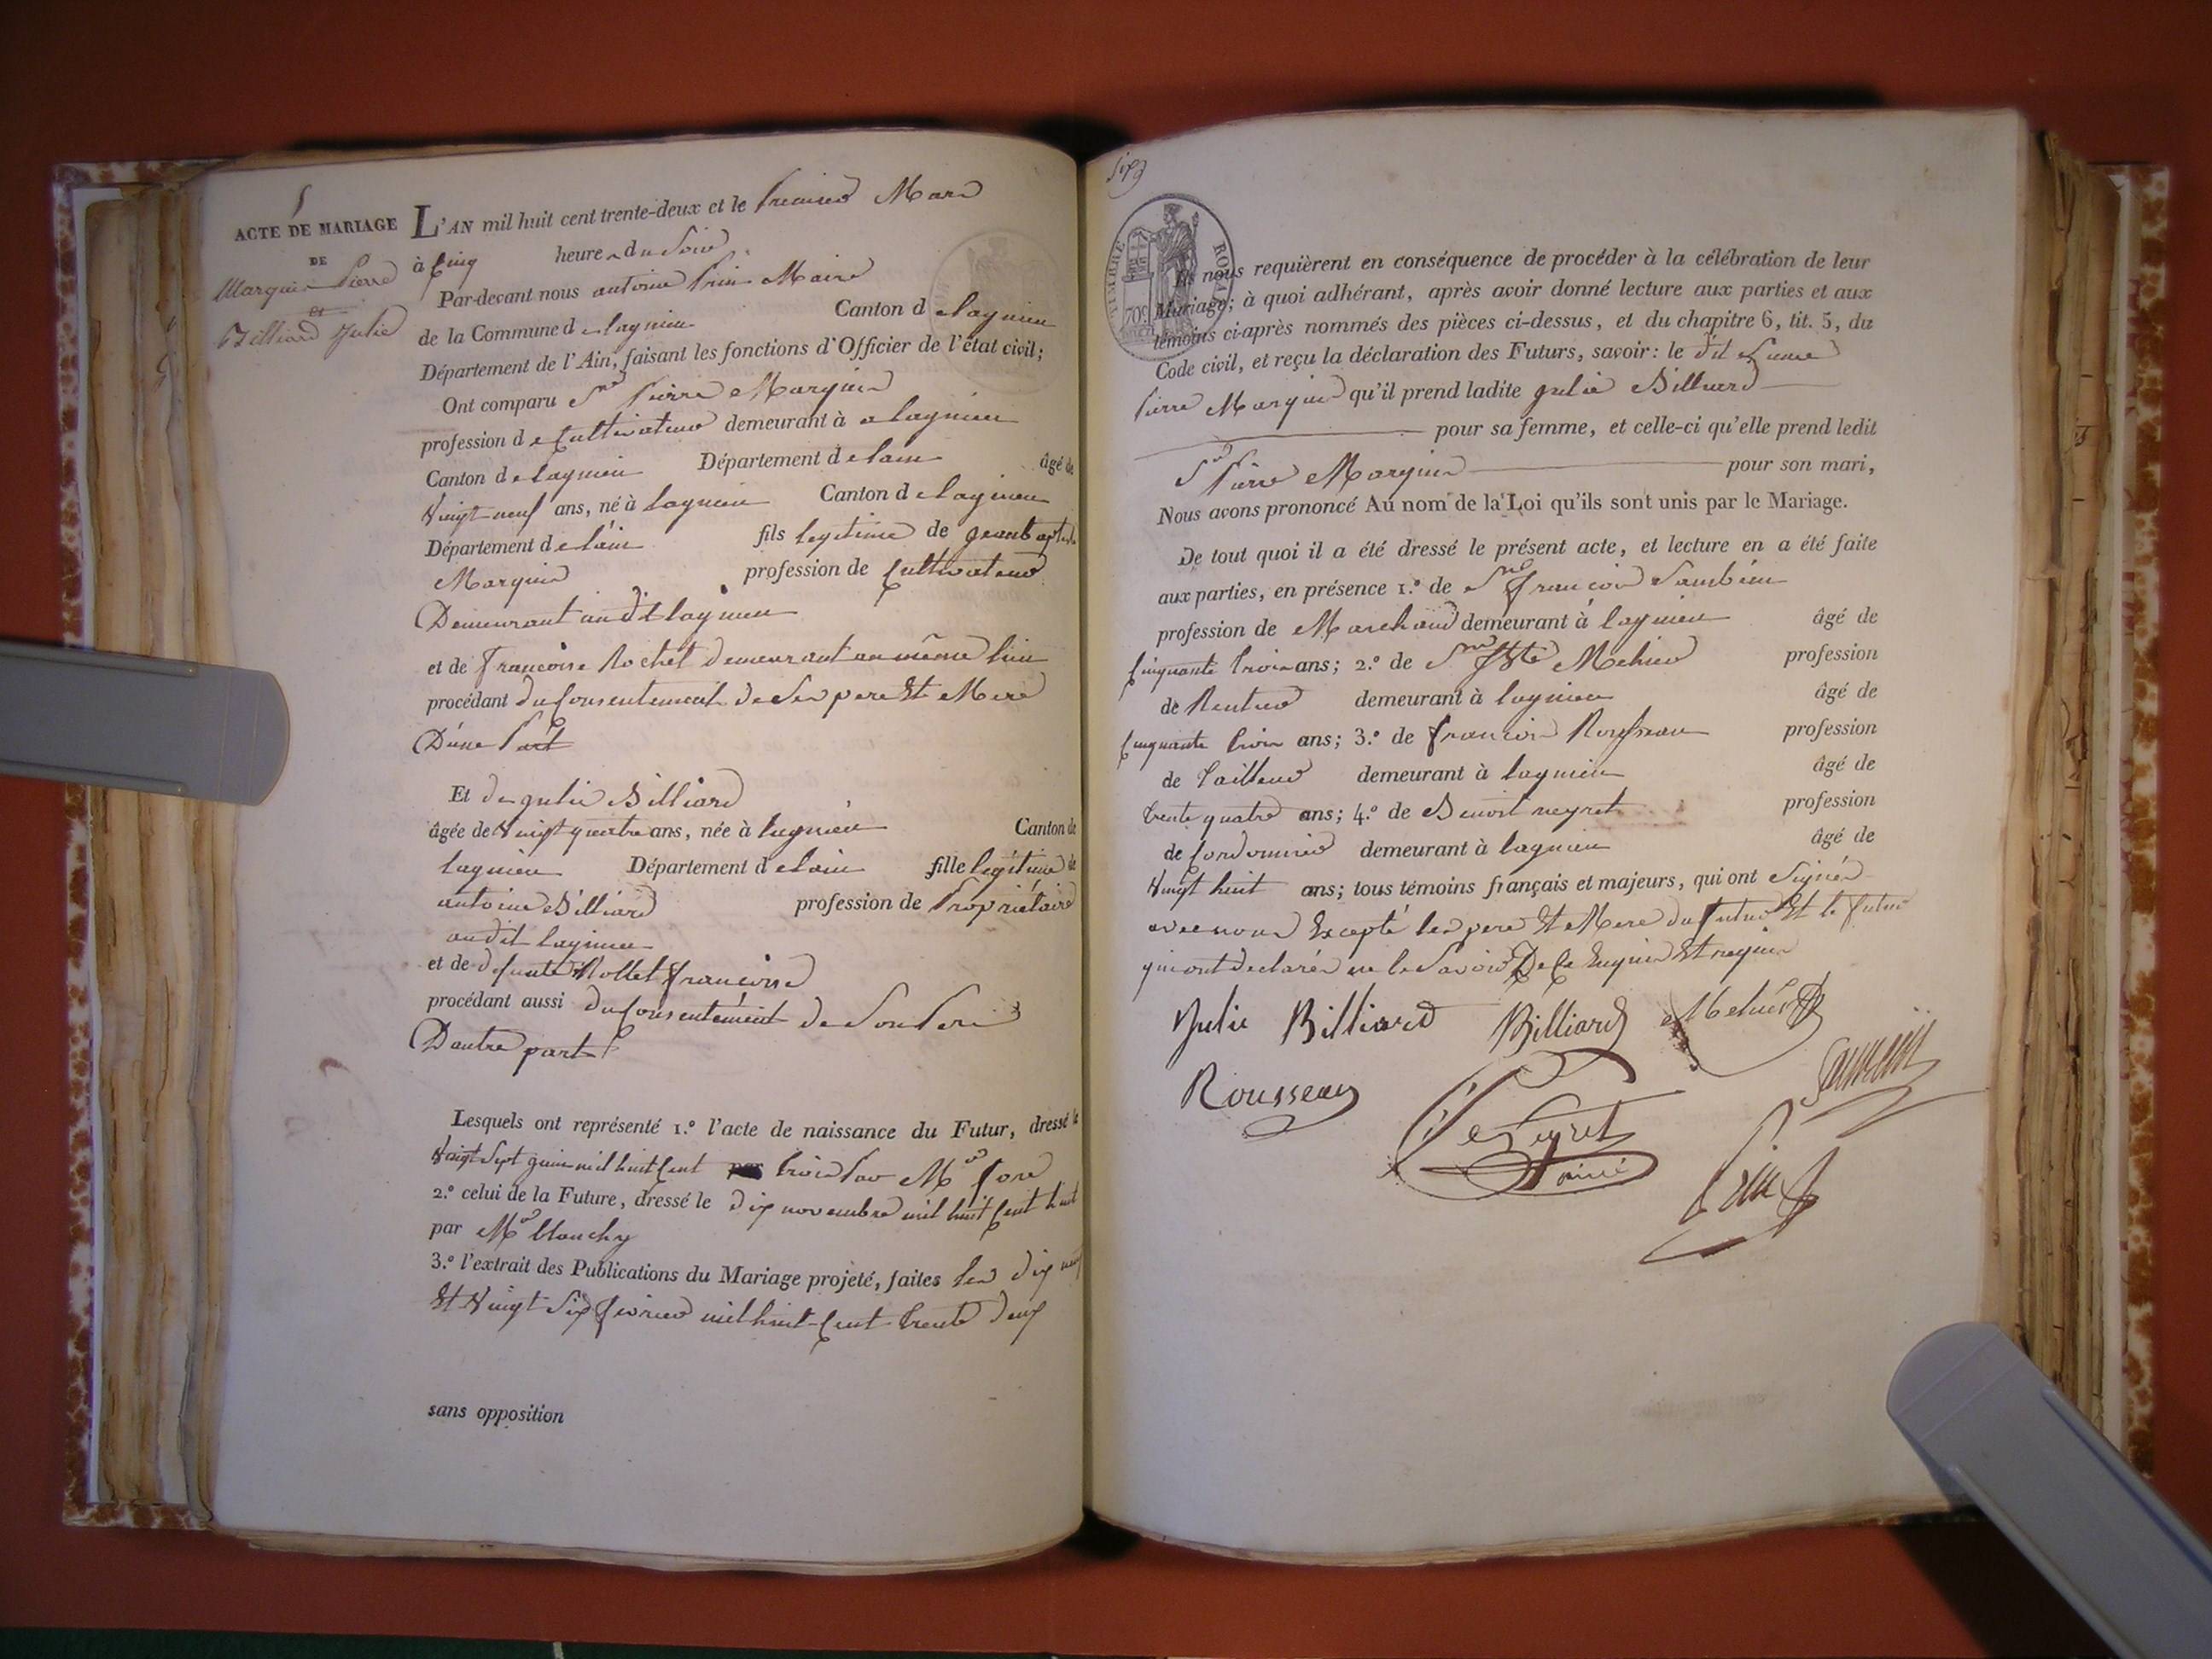 5
ACTE DE MARIAGE
DE
Marguin Pierre
et
Billiard Julie
L'AN mil huit cent trente-deux et le premier Mars
à Cinq heures du Soir
Par-devant nous antoine Maire
de la Commune de lagnieu Canton de lagnieu
Département de l'Ain, faisant les fonctions d'Officier de l'état civil;
Ont comparu Sr pierre Marguin
profession de Cultivateur demeurant à a lagnieu
Canton de lagnieu Département de lain âgé de
Vingt neuf ans, né à lagnieu Canton de lagnieu
Département de lain fils legitime de jean baptiste
Marguin profession de Cultivateur
Demeurant audit lagnieu
et de francoise Rochet demeurant au même lieu
procédant du Consentement de Ses pere Et Mere
D'une Part
Et de julie Billiard
âgée de Vingt quatre ans, née à lagnieu Canton de
lagnieu Département de lain fille legitime de
antoine Billiard profession de Propriétaire
audit lagnieu
et de defunte Rollet francoise
procédant aussi du Consentement de Son Pere
D'autre part
Lesquels ont représenté 1.º l'acte de naissance du Futur, dressé le
Vingt Sept juin mil huit Cent trois par Mr
2.º celui de la Future, dressé le dix novembre mil huit Cent huit
par Mr blanchy
3.º l'extrait des Publications du Mariage projeté, faites les dix neuf
Et Vingt Six fevrier mil huit Cent trente deux
sans opposition
TIMBRE ROYAL
70c
Ils nous requièrent en conséquence de procéder à la célébration de leur
Mariage; à quoi adhérant, après avoir donné lecture aux parties et aux
témoins ci-après nommés des pièces ci-dessus, et du chapitre 6, tit. 5, du
Code civil, et reçu la déclaration des Futurs, savoir: le dit
pierre Marguin qu'il prend ladite julie Billiard
pour sa femme, et celle-ci qu'elle prend ledit
Sr pierre Marguin pour son mari,
Nous avons prononcé Au nom de la Loi qu'ils sont unis par le Mariage.
De tout quoi il a été dressé le présent acte, et lecture en a été faite
aux parties, en présence 1.º de Sr francois
profession de Marchand demeurant à lagnieu âgé de
Cinquante trois ans; 2.º de Sr Mehier profession
de Rentier demeurant à lagnieu âgé de
Cinquante trois ans; 3.º de francois Rousseau profession
de tailleur demeurant à lagnieu âgé de
trente quatre ans; 4.º de Benoit neyret profession
de Cordonnier demeurant à lagnieu âgé de
Vingt huit ans; tous témoins français et majeurs, qui ont Signés
avec nous Excepté les pere Et Mere du futur Et le futur
qui ont declarés ne le Savoir De Ce Enquis Et requis
Julie Billiard Billiard Mehier
Rousseau